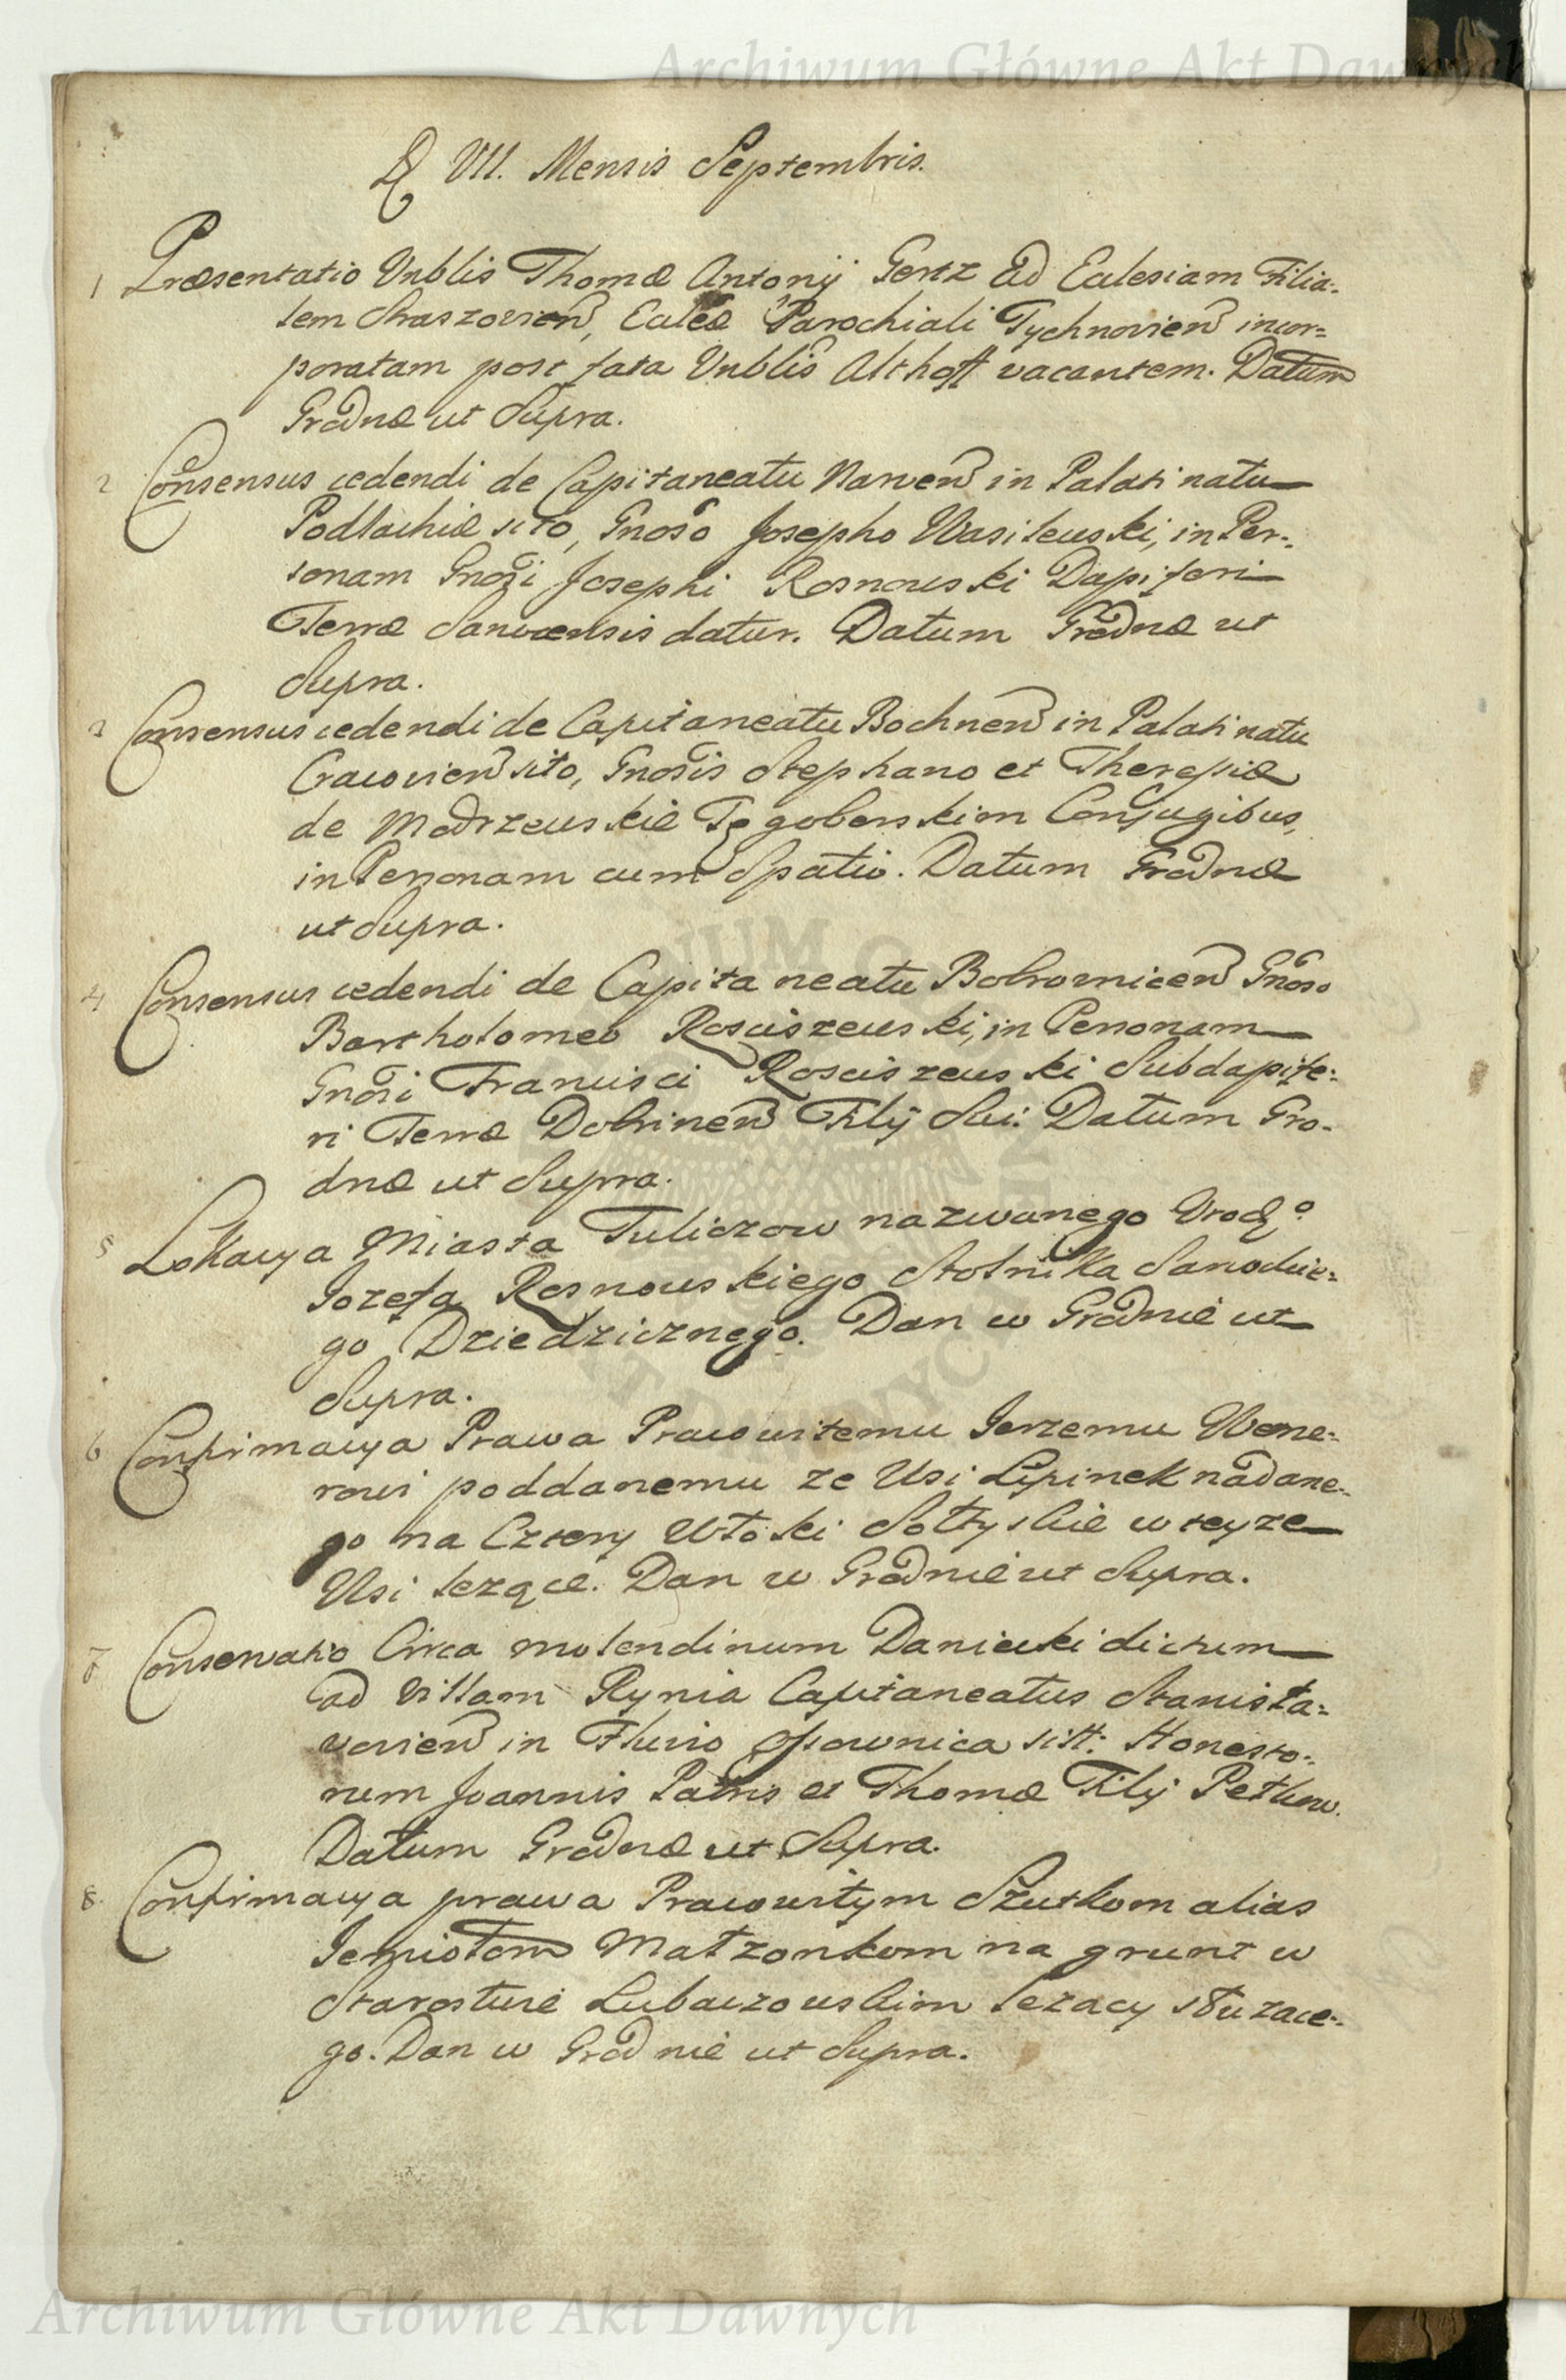 Archiwum Główne Akt Dawnych
D VII. Mensis Septembris.
1 Præsentatio Vnblis Thomæ Antonij Gertz Ad Ecclesiam Filia-
lem Straszovien, Eccleæ Parochiali Tychnovien incor-
poratam post fata Vnblis Althoff vacantem. Datum
Grodnæ ut Supra.
2 Consensus cedendi de Capitaneatu Narven in Palatinatu
Podlachiæ sito, Gnoso Josepho Wasilewski, in Per-
sonam Gnosi Josephi Rosnowski Dapiferi
Terræ Sanocensis datur. Datum Grodnæ ut
Supra.
3 Consensus cedendi de Capitaneatu Bochnen in Palatinatu
Cracovien sito, Gnosis Stephano et Theresiæ
de Modrzewskie Tęgoborskim Conjugibus,
in Personam cum Spatio. Datum Grodnæ
ut Supra.
4 Consensus cedendi de Capitaneatu Bobrownicen Gnoso
Bartholomeo Rosciszewski, in Personam
Gnosi Francisci Rosciszewski Subdapife-
ri Terræ Dobrinen Filij Sui. Datum Gro-
dnæ ut Supra.
5 Lokacya Miasta Tuliczow nazwanego Vrodzo
Jozefa Rosnowskiego Stolnika Sanockie-
go Dziedzicznego. Dan w Grodnie ut
Supra.
6 Confirmacya Prawa Pracowitemu Jerzemu Wene-
rowi poddanemu ze Wsi Lipinek nadane-
go na Cztery Włoki Sołtyskie w teyze
Wsi lezące. Dan w Grodnie ut Supra.
7 Conservatio Circa molendinum Daniecki dictum
ad Villam Rynia Capitaneatus Stanisła-
vovien in Fluvio Osownica sitt: Honesto-
rum Joannis Patris et Thomæ Filij Petkow.
Datum Grodnæ ut Supra.
8. Confirmacya prawa Pracowitym Szutkom alias
Jemiołom Małzonkom na grunt w
Starostwie Lubaczowskim lezacy słuzace-
go. Dan w Grodnie ut Supra.
Archiwum Główne Akt Dawnych